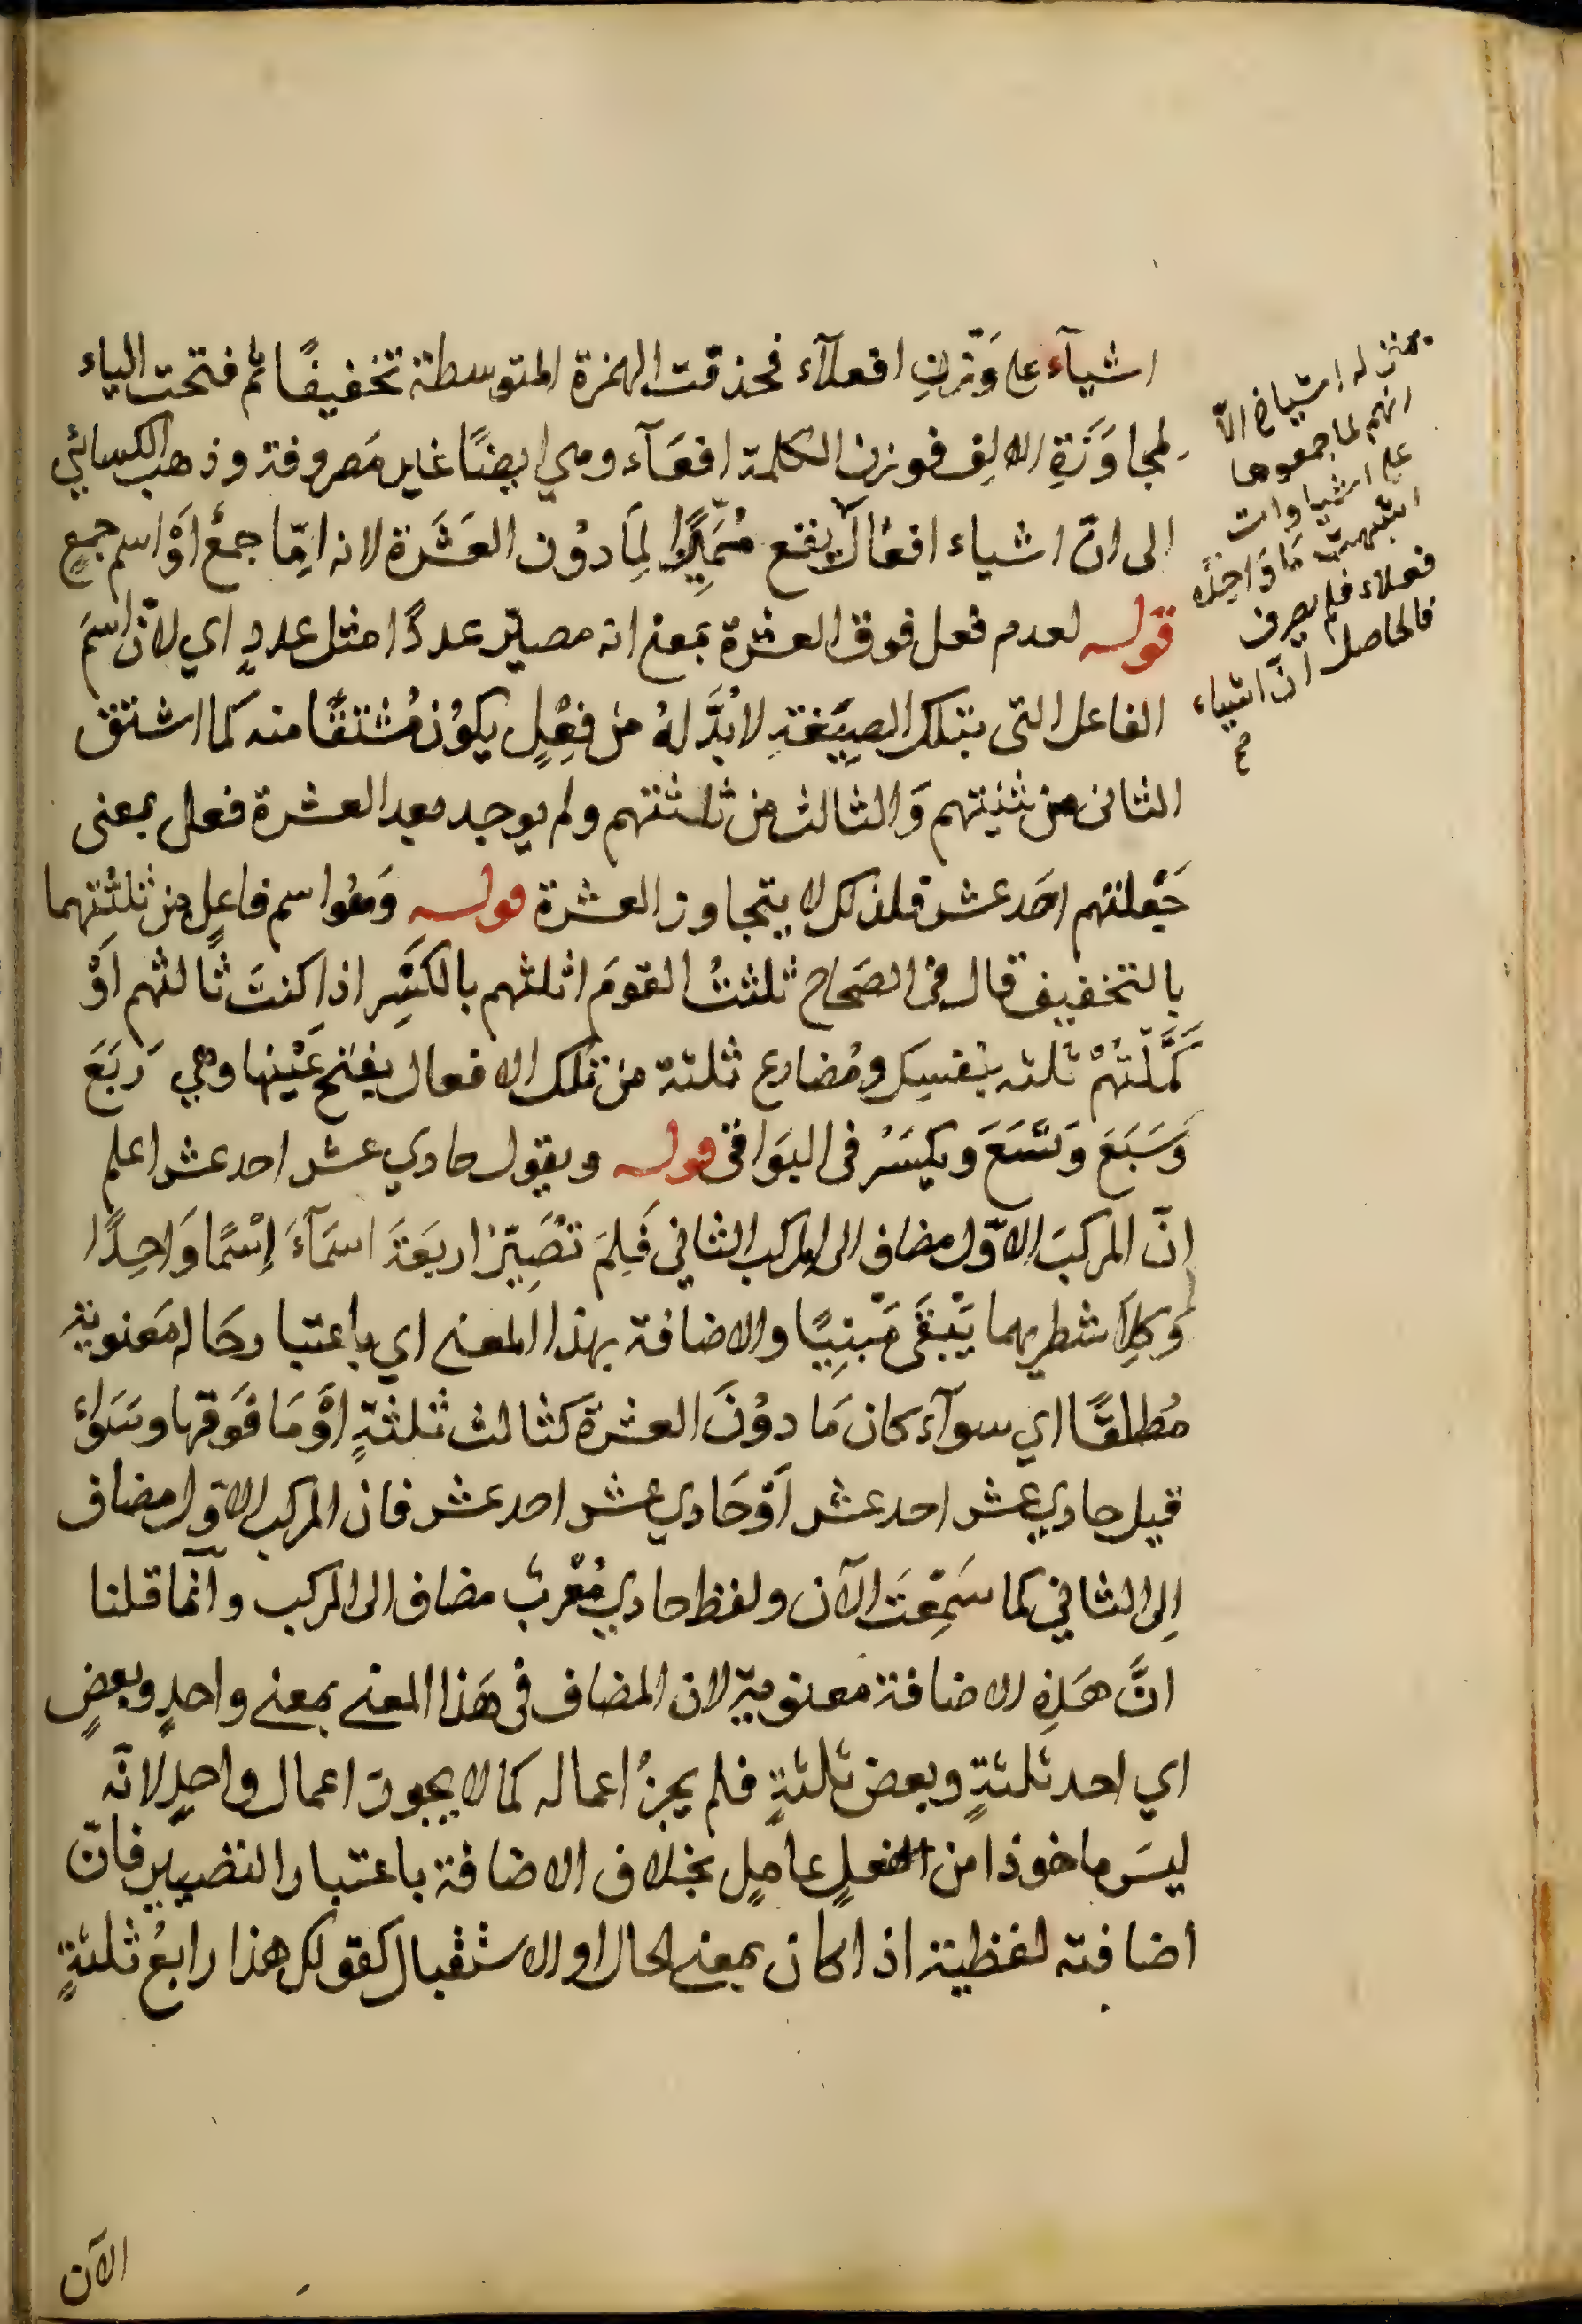 اشيآء على وَزنِ افعلآء فحذفت الهمزة المتوسطة تخفيفًا ثم فتحت الياء
لمجاوَرَةِ الالِف فوزن الكلمة افعَآء وهي ايضًا غير مَصروفة وذهب الكسائي
الى انّ اشياء افعال يقع مُمَيِّزًا لِمَا دوُن العَشَرة لانه امّا جمعٌ اَوْ اسم جمعٍ
قوله لعدم فعل فوق العشرة بمعنى انه مصيّر عددًا مثل عددٍ اي لانّ اسمَ
الفاعل التى بتلك الصِيغَةِ لابُدَّ لهُ من فِعْلٍ يكوُن مُشتقًا منه كما اشتق
الثانى من ثنيتهم وَالثالث من ثلثتهم ولم يوجد بعد العشرة فعل بمعنى
جَعلتهم احَد عشر فلذلك لا يتجاوز العشرة قوله وَهُوا سم فاعِلٍ من ثلثتهما
بالتخفيف قال فى الصَحاح ثلثتُ القومَ اثلثهم بالكَسِر اذا كنتَ ثالثهم اَوْ
كَمَّلتهُمْ ثلثه بنفسِك ومُضارع ثلثة من تلك الافعال بفتح عَيْنها وهي رَبَعَ
وَسَبَعَ وَتَسَعَ وبكَسَر فى البَوَاقى قوله ويقول حادي عشر احد عشر اعلم
انّ المركبَ الاوّل مضاف الى المركب الثاني فَلِمَ تصَيِّرْ اربَعَة اسمَآءَ اِسْمًا وَاحِدًا
وَكِلاَ شطريهما يَبْقَى مَبْنِيًا والاضافة بهذا المعنى اي باعتبار حَاله مَعنوية
مُطلقًا اي سوآء كان مَا دوُنَ العشرة كثالث ثلثةٍ اَوْ مَا فَوقها وسَوَاءٌ
قيل حادي عشر احد عشر اَوْ حَادي عشر احد عشر فان المركب الاوّل مضاف
اِلى الثاني كما سَمِعْتَ الآن ولفظ حادي مُعْربٌ مضاف الى المركب وآنّما قلنا
انَّ هَذِهِ الاضافة معنويّة لان المضاف فى هَذا المعنى بمعنى واحدٍ وبعضٍ
اي احد ثلثةٍ وبعض ثلثةٍ فلم يجزْ اعماله كما لا يجوز اعمال واحدٍ لانّه
ليسَ ماخوذا من الفعلٍ عاملٍ بخلاف الاضافة باعتبار التصيير فانّ
اضافته لفظية اذا كان بمعنى الحال او الاستقبال كقولك هذا رابعُ ثلثةٍ
الآن
بمنزله اشياخ الّا
انهم لما جمعوها
على اشياوات
اشبهت مَا وَاحِدُه
فعلاء فلم يصرف
فالحاصل انّ اشياء